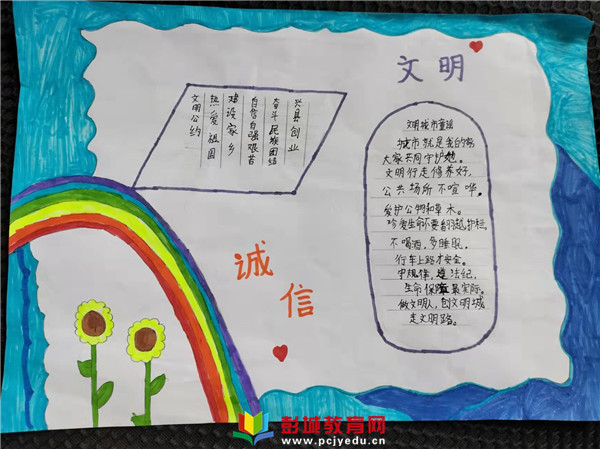 文明
文明公约
热爱祖国
建设家乡
自信自强艰苦
奋斗民族团结
兴县创业
诚信
文明城市童谣
城市就是我的家
大家共同守护她。
文明行走修养好,
公共场所不喧哗。
爱护公物和草木。
珍爱生命不要翻越护栏
不喝酒,多睡眠。
行车上路才安全。
守规律,遵法纪,
生命保障最实际。
做文明人,创文明城
走文明路。
彭城教育网
www.pcjyedu.cn